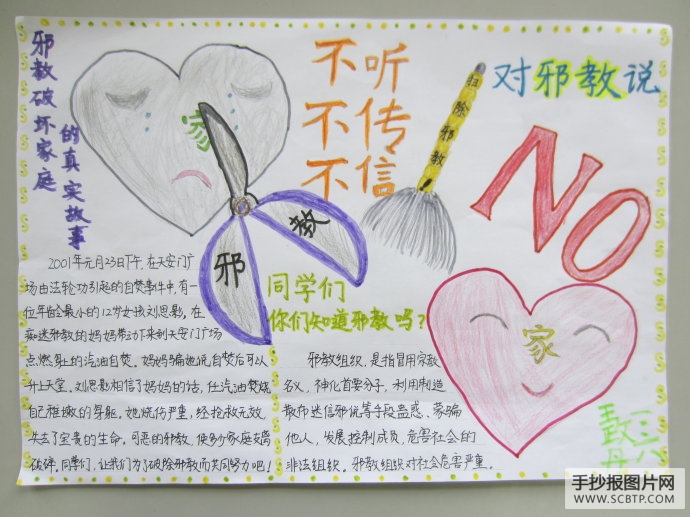 邪教破坏家庭
的真实故事
家
邪
教
不听
不传
不信
扫除邪教
对邪教说
NO
2001年元月23日下午,在天安门广
场由法轮功引起的自焚事件中,有一
位年龄最小的12岁女孩刘思影,在
痴迷邪教的妈妈带动下来到天安门广场
点燃身上的汽油自焚。妈妈骗她说自焚后可以
升上天堂。刘思影相信了妈妈的话,任汽油焚烧
自己稚嫩的身躯。她烧伤严重,经抢救无效,
失去了宝贵的生命。可恶的邪教,使多少家庭支离
破碎。同学们,让我们为了破除邪教而共同努力吧!
同学们
你们知道邪教吗?
邪教组织,是指冒用宗教
名义,神化首要分子,利用制造
散布迷信邪说等手段蛊惑、蒙骗
他人,发展控制成员,危害社会的
非法组织。邪教组织对社会危害严重。
家
三八
手抄报图片网
WWW.SCBTP.COM